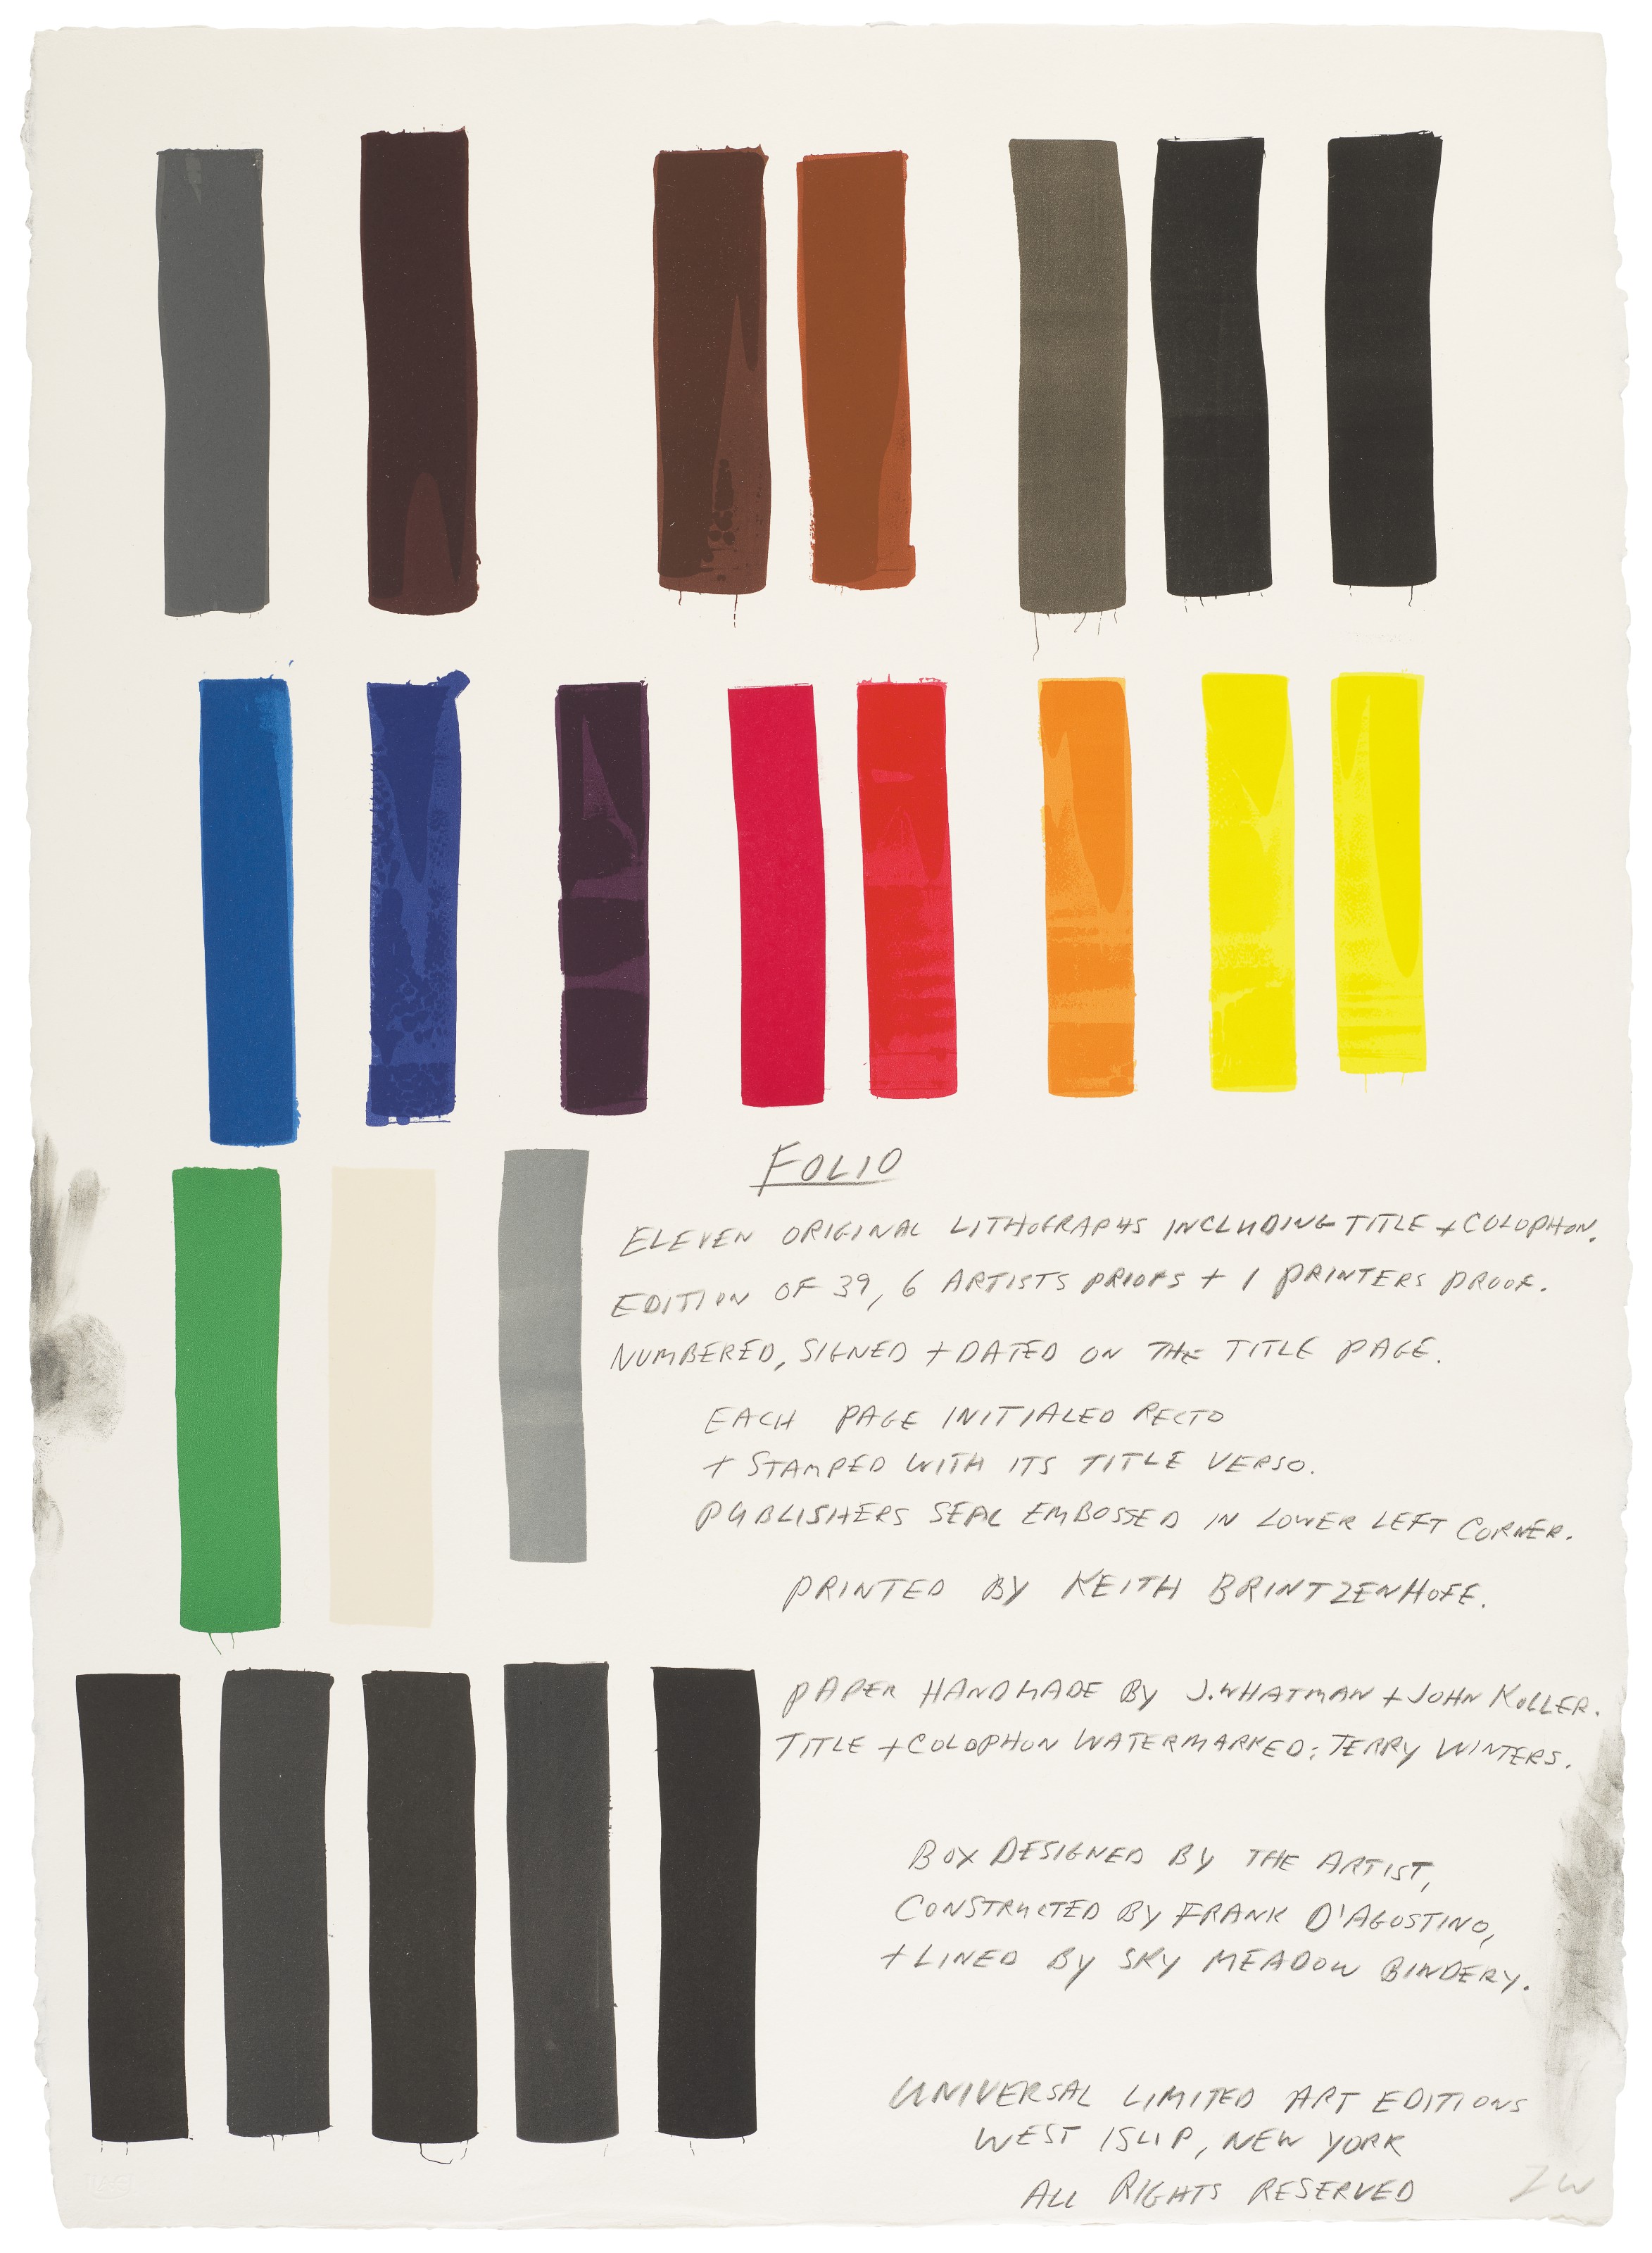 FOLIO
ELEVEN ORIGINAL LITHOGRAPHS INCLUDING TITLE + COLOPHON.
EDITION OF 39, 6 ARTISTS PROOFS + 1 PRINTERS PROOF.
NUMBERED, SIGNED + DATED ON THE TITLE PAGE.
EACH PAGE INITIALED RECTO
+ STAMPED WITH ITS TITLE VERSO.
PUBLISHERS SEAL EMBOSSED IN LOWER LEFT CORNER.
PRINTED BY KEITH BRINTZENHOFE.
PAPER HANDMADE BY J. WHATMAN + JOHN KOLLER.
TITLE + COLOPHON WATERMARKED: TERRY WINTERS.
BOX DESIGNED BY THE ARTIST,
CONSTRUCTED BY FRANK D'AGOSTINO,
+ LINED BY SKY MEADOW BINDERY.
UNIVERSAL LIMITED ART EDITIONS
WEST ISLIP, NEW YORK
ALL RIGHTS RESERVED
TW